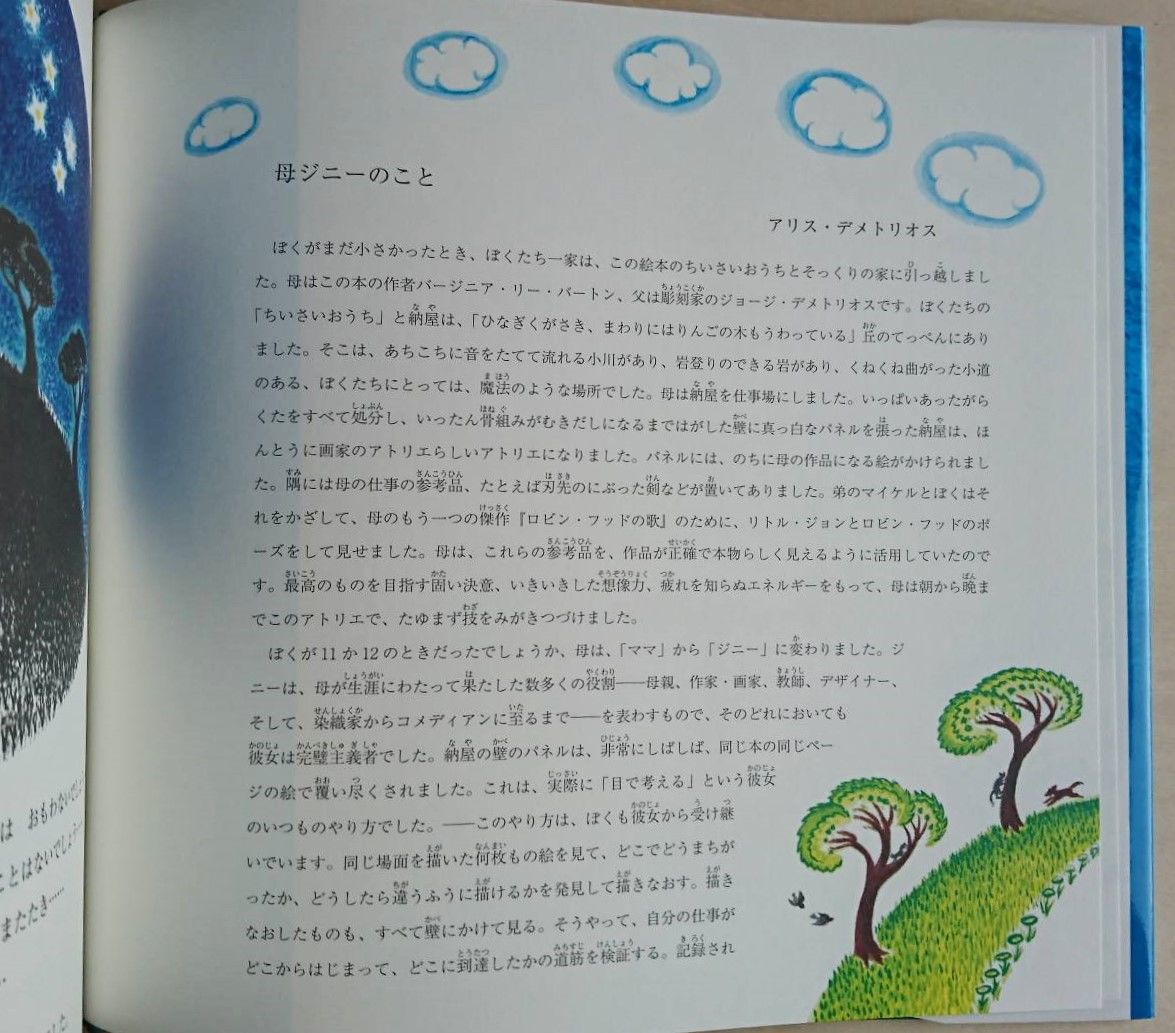 母ジニーのこと
アリス・デメトリオス
ぼくがまだ小さかったとき、ぼくたち一家は、この絵本のちいさいおうちとそっくりの家に引っ越しまし
た。母はこの本の作者バージニア・リー・バートン、父は彫刻家のジョージ・デメトリオスです。ぼくたちの
「ちいさいおうち」と納屋は、「ひなぎくがさき、まわりにはりんごの木もうわっている」丘のてっぺんにあり
ました。そこは、あちこちに音をたてて流れる小川があり、岩登りのできる岩があり、くねくね曲がった小道
のある、ぼくたちにとっては、魔法のような場所でした。母は納屋を仕事場にしました。いっぱいあったがら
くたをすべて処分し、いったん骨組みがむきだしになるまではがした壁に真っ白なパネルを張った納屋は、ほ
んとうに画家のアトリエらしいアトリエになりました。パネルには、のちに母の作品になる絵がかけられまし
た。隅には母の仕事の参考品、たとえば刃先のにぶった剣などが置いてありました。弟のマイケルとぼくはそ
れをかざして、母のもう一つの傑作『ロビン・フッドの歌』のために、リトル・ジョンとロビン・フッドのポ
ーズをして見せました。母は、これらの参考品を、作品が正確で本物らしく見えるように活用していたので
す。最高のものを目指す固い決意、いきいきした想像力、疲れを知らぬエネルギーをもって、母は朝から晩ま
でこのアトリエで、たゆまず技をみがきつづけました。
ぼくが11か12のときだったでしょうか、母は、「ママ」から「ジニー」に変わりました。ジ
ニーは、母が生涯にわたって果たした数多くの役割――母親、作家・画家、教師、デザイナー、
そして、染織家からコメディアンに至るまで――を表わすもので、そのどれにおいても
彼女は完璧主義者でした。納屋の壁のパネルは、非常にしばしば、同じ本の同じペー
ジの絵で覆い尽くされました。これは、実際に「目で考える」という彼女
のいつものやり方でした。――このやり方は、ぼくも彼女から受け継
いでいます。同じ場面を描いた何枚もの絵を見て、どこでどうまちが
ったか、どうしたら違うふうに描けるかを発見して描きなおす。描き
なおしたものも、すべて壁にかけて見る。そうやって、自分の仕事が
どこからはじまって、どこに到達したかの道筋を検証する。記録され
は おもわないでしょ
ことはないでしょう
またたき……